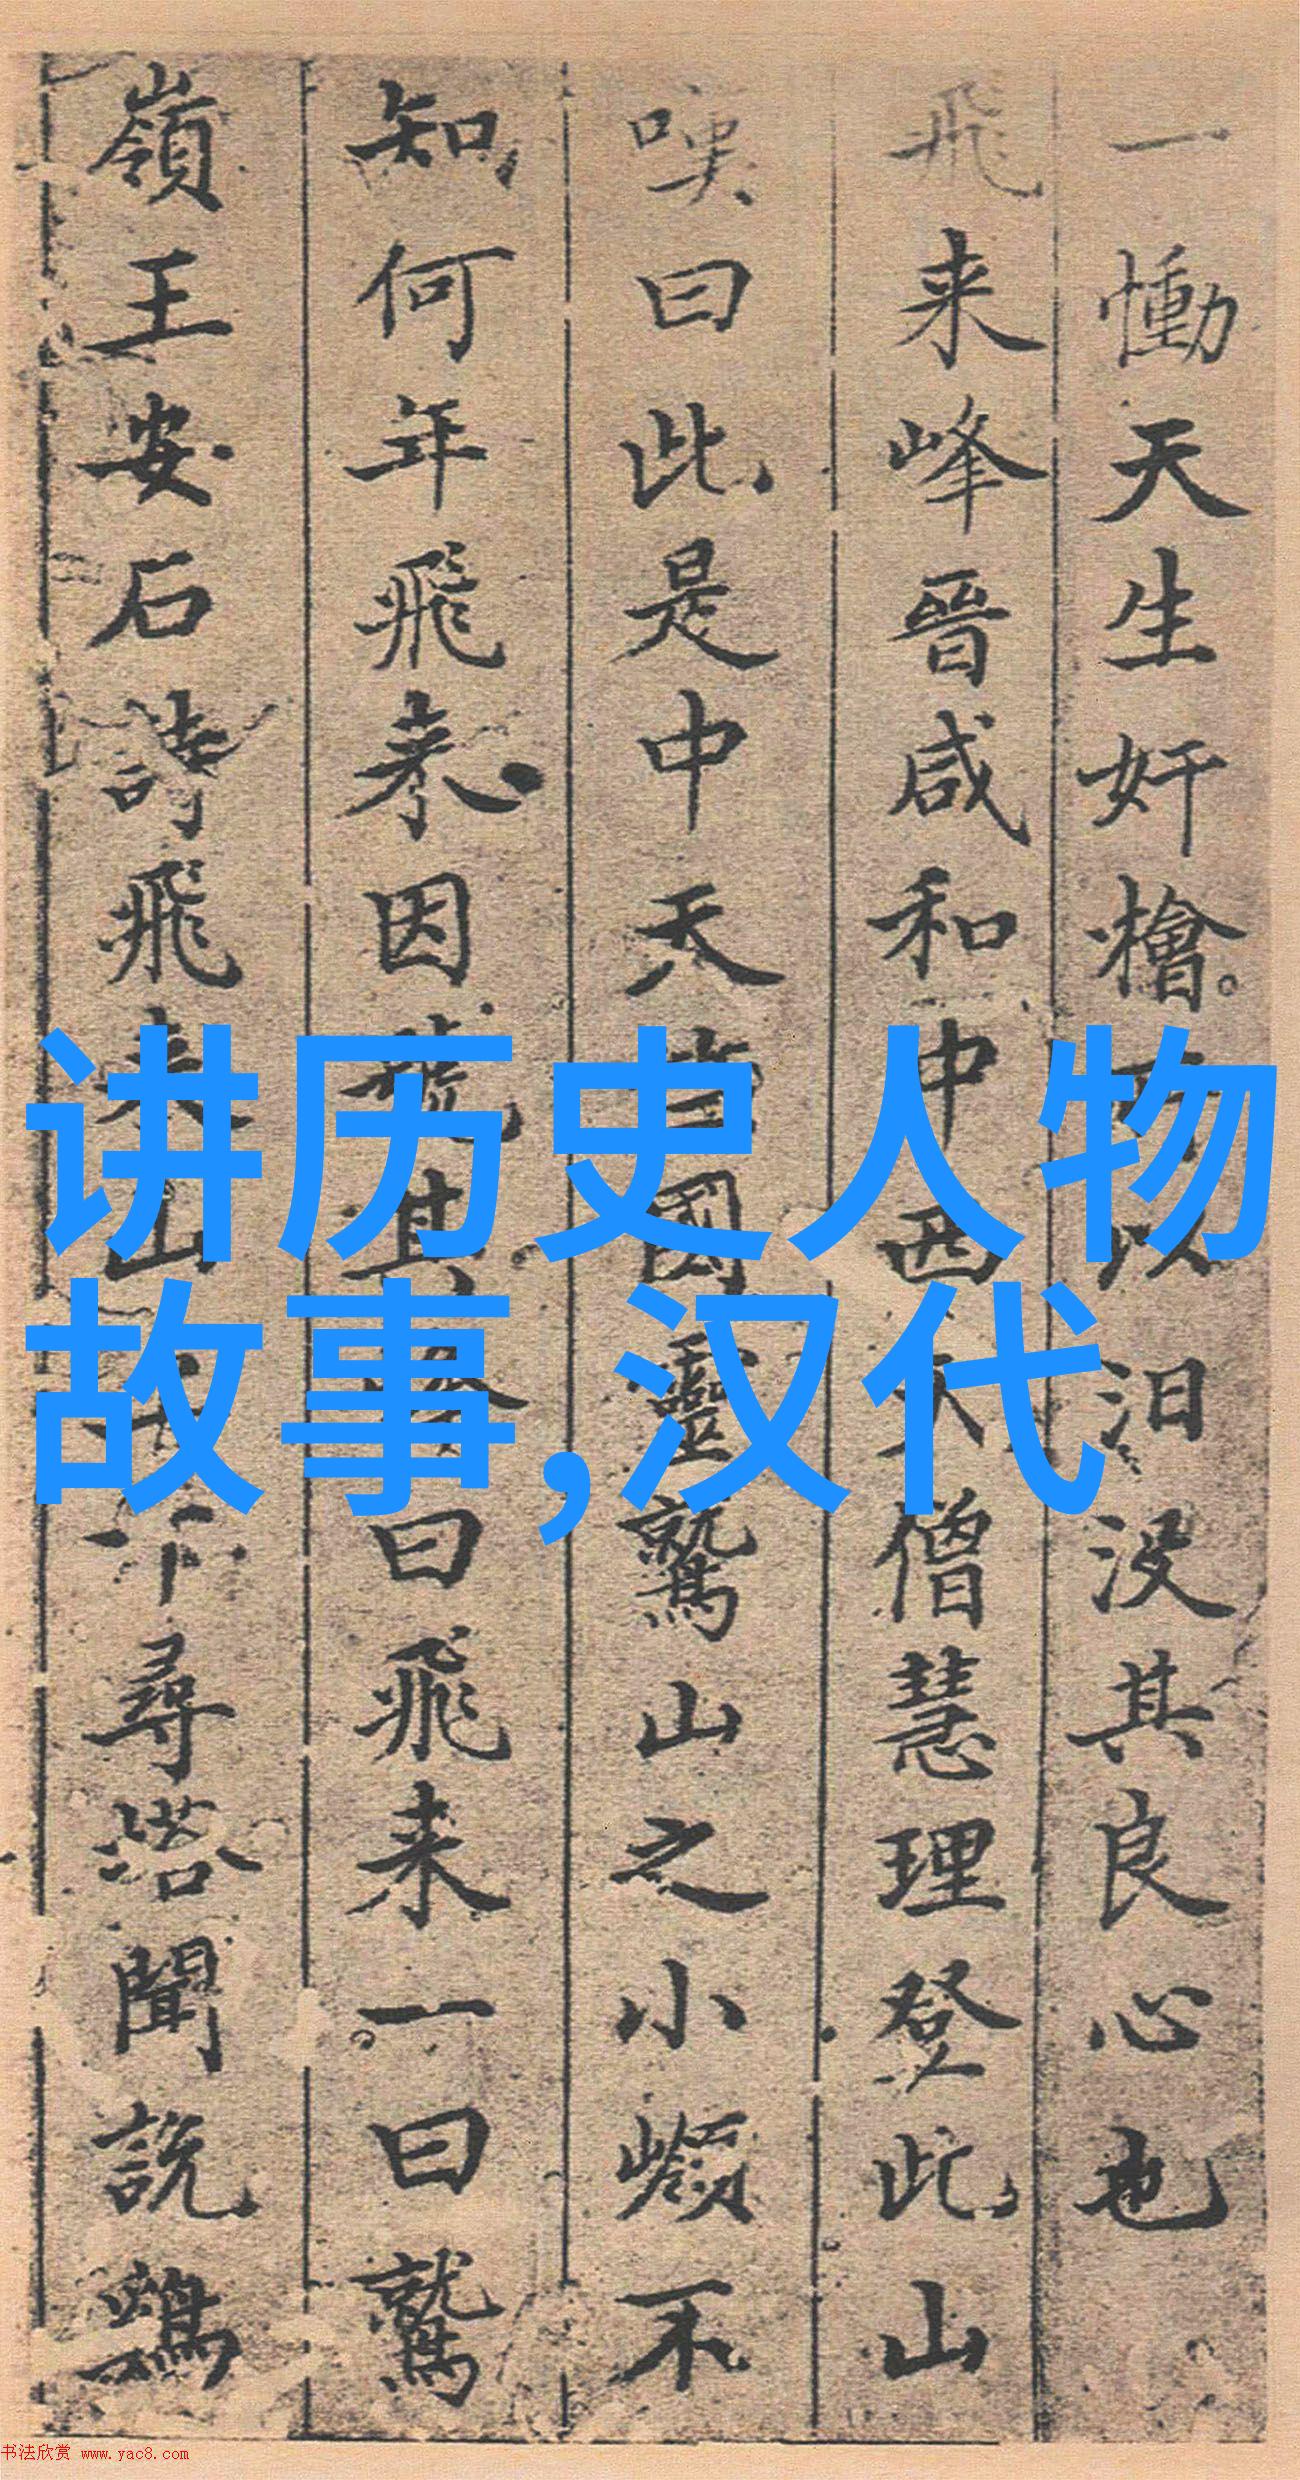 一慟天生奸檜以汨没其良心也
飛来峰晉咸和中西天僧慧理登此山
嘆曰此是中天竺國靈鷲山之小嶺不
知何年飛来因號其峰曰飛来一曰鷲
嶺王安石詩飛来山上千尋塔聞説鷄
讲历史人物
故事,汉代
书法欣赏 www.yac8.com